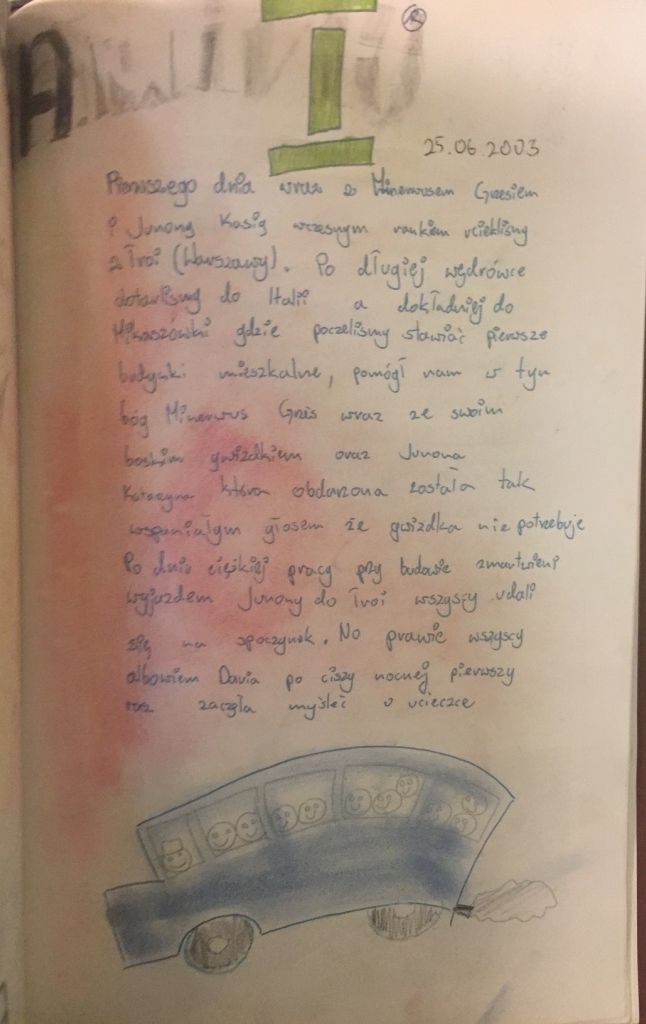 I
®
25.06.2003
Pierwszego dnia wraz z Minerwusem Grzesiem
i Junoną Kasią wczesnym rankiem uciekliśmy
z Troi (Warszawy). Po długiej wędrówce
dotarliśmy do Italii a dokładniej do
Mikaszówki gdzie poczeliśmy stawiać pierwsze
budynki mieszkalne, pomógł nam w tym
bóg Minerwus Grześ wraz ze swoim
boskim gwizdkiem oraz Junona
Katarzyna która obdarzona została tak
wspaniałym głosem że gwizdka nie potrzebuje
Po dniu ciężkiej pracy przy budowie zmartwieni
wyjazdem Junony do Troi wszyscy udali
się na spoczynek. No prawie wszyscy
albowiem Daria po ciszy nocnej pierwszy
raz zaczęła myśleć o ucieczce